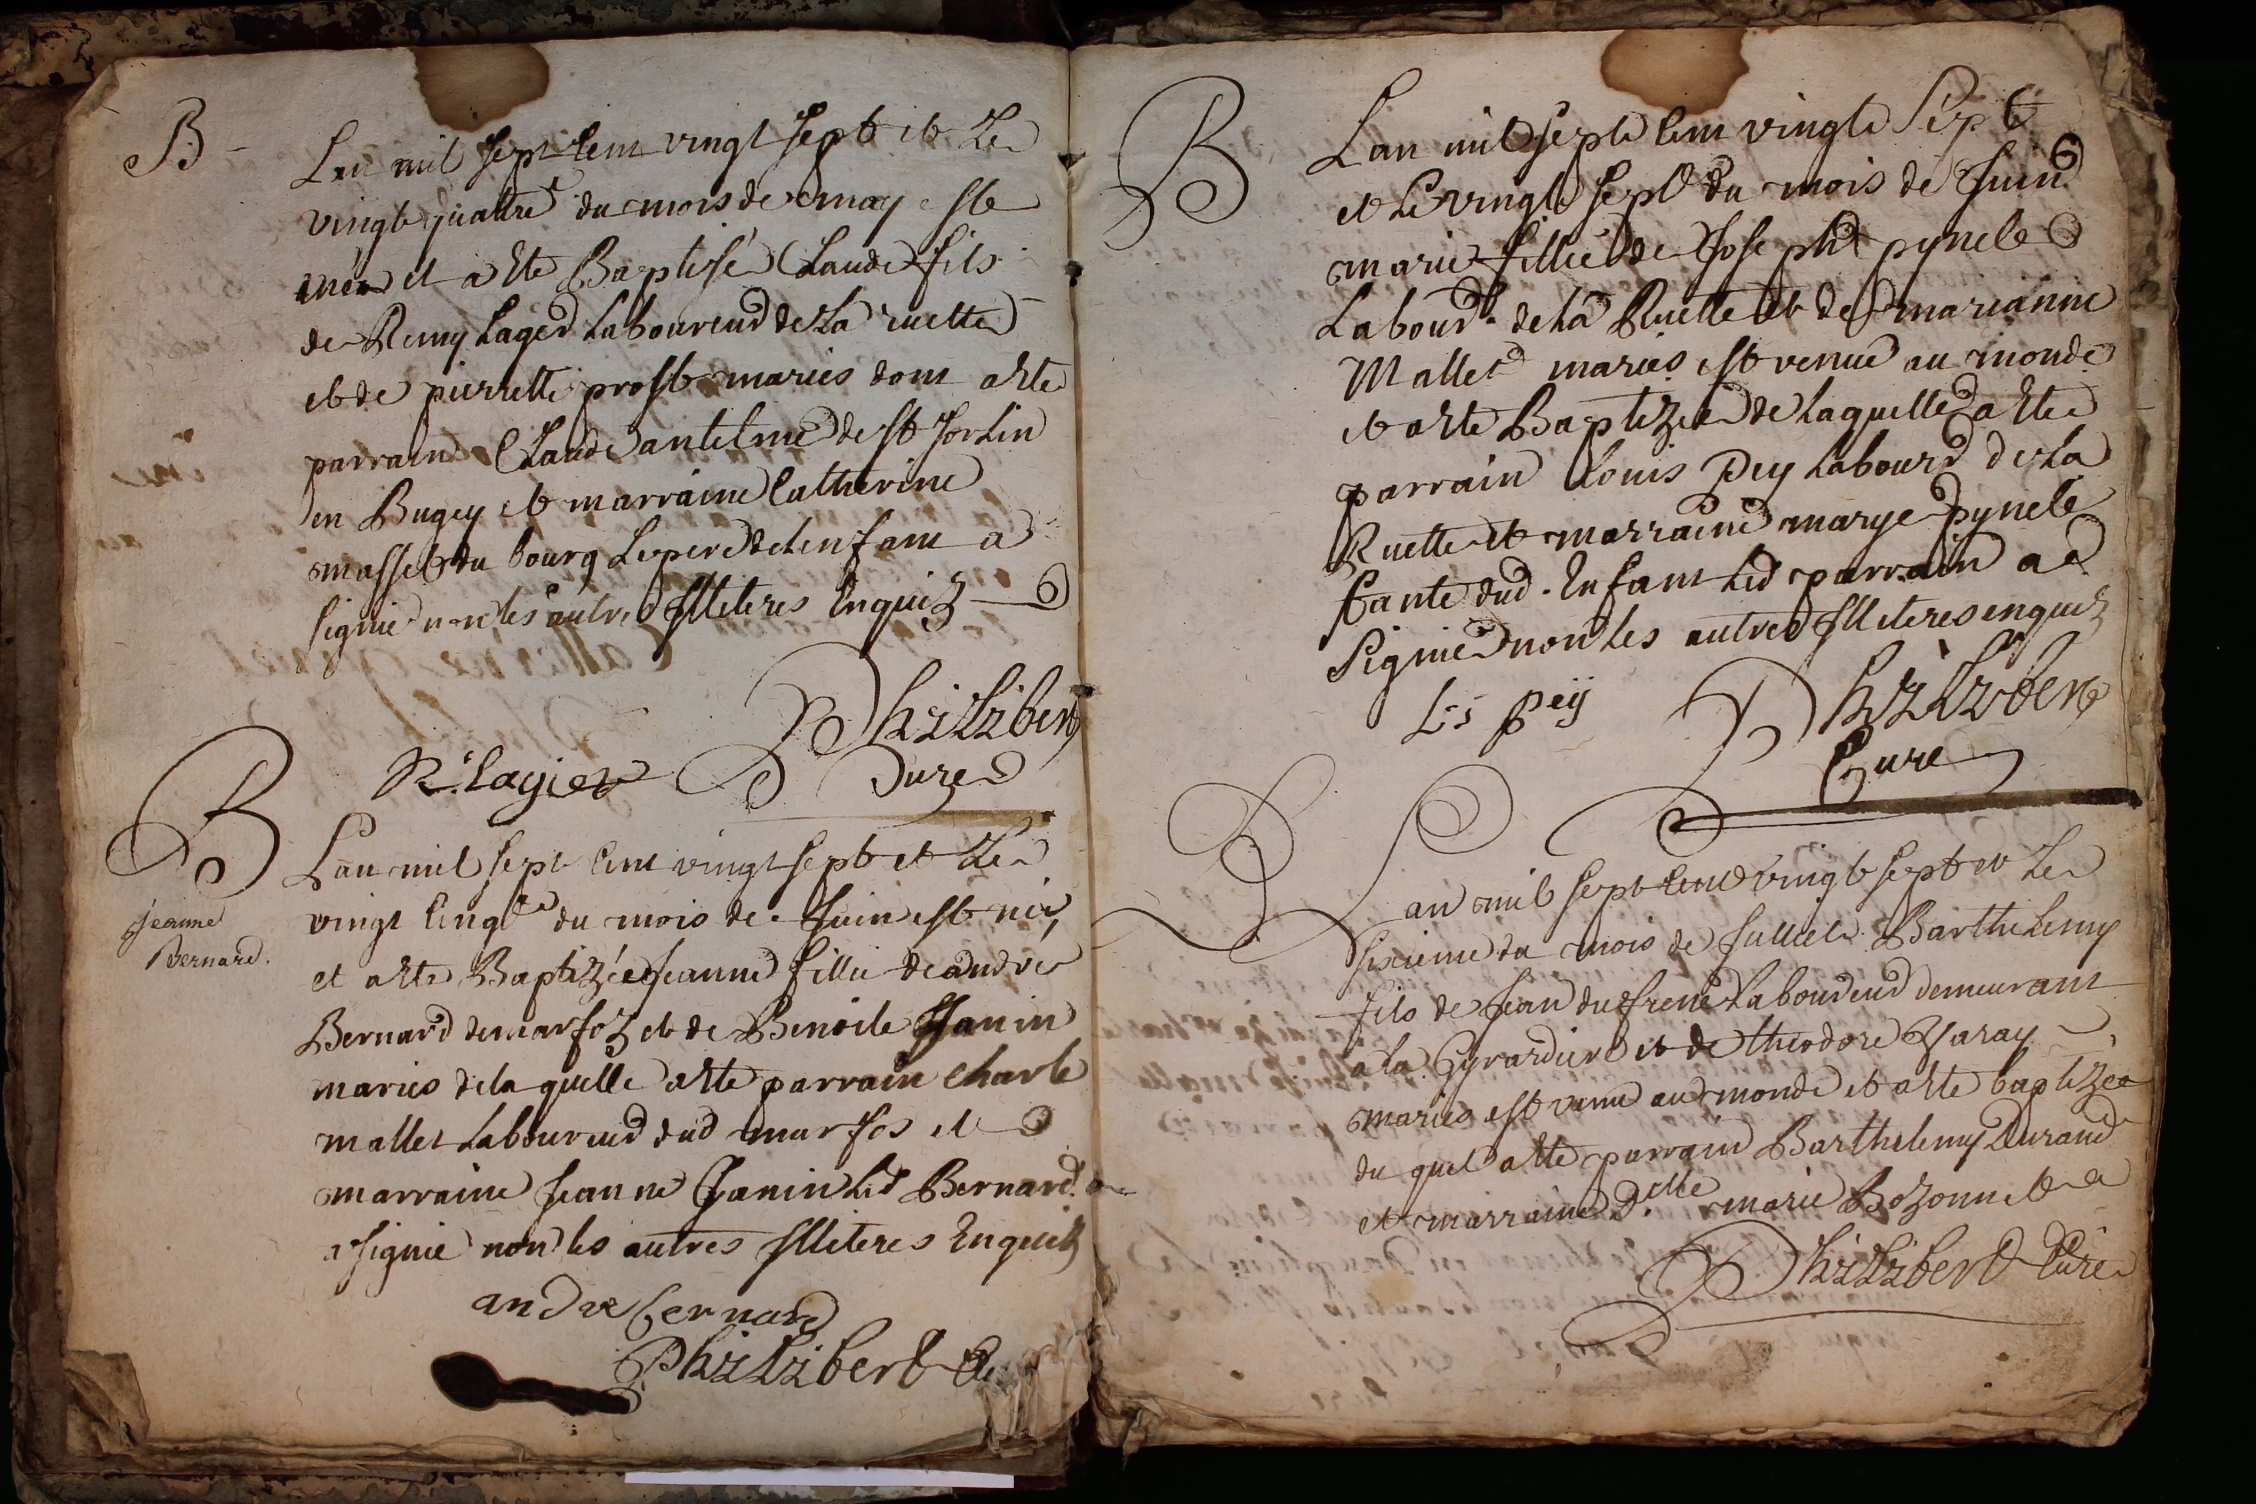 B
Lan mil sept cent vingt sept et Le
vingt quattre du mois de may est
né et a este Baptisé Claude fils
de Remy Lager Laboureur de La ruette
et de pierrette prost maries dont a este
parrain Claude antelme de st Sorlin
en Bugey et marraine Catherine
masset du bourg Le pere de lenfant a
signé non les autres illiteres Enquis
Philibert
R. Lagier Curé
B
Lan mil sept cent vingt sept et Le
jeanne
Bernard.
vingt cinq du mois de Juin est née
et a este Baptizée Jeanne fillie de andre
Bernard de marfoz et de Benoite Janin
maries de la quelle a este parrain charle
mallet Laboureur dud marfos et
marraine Jeanne Janin Led Bernard a
signé non les autres illiteres Enquis
andre bernard
Philibert C
B
Lan mil sept cent vingt Sept
et Le vingt sept du mois de Juin
marie fillie de Joseph pynele
Labourd. de La Ruette et de marianne
Mallet maries est venue au monde
et a este Baptizée de laquelle a este
parrain Louis Pey Labourd de La
Ruette et marraine marye pynele
tante dud. Enfant Led parrain a
Signé non Les autres illiteres enquis
Ls pey Philibert
Curé
B
Lan mil sept cent vingt sept et Le
sixieme du mois de Julliet Barthelemy
fils de Jean dufrene Laboureur demeurant
a la Gyrardiere et de theodore Varay
maries est venu au monde et a este baptizé
du quel a este parrain Barthelemy Durand
et marraine D.elle marie Bozonnet
Philibert Curé